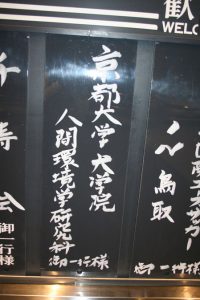 歓
WELC
鳥取
御一行様
京都大学大学院
人間環境学研究科
御一行様
寿会
御一行様